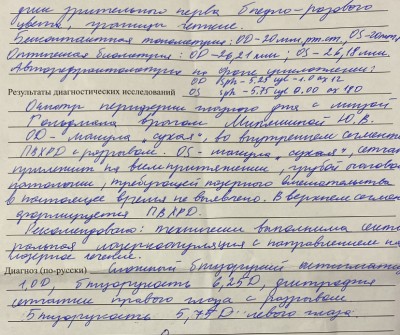 диск зрительного нерва бледно-розового
цвета, границы четкие.
Бесконтактная тонометрия: OD-20мм.рт.ст, OS-20
Оптическая биометрия: OD-26,21мм; OS-26,18мм.
Авторефрактометрия на фоне циклоплегии:
OD sph -5.25 cyl -1.0 ax 12
Результаты диагностических исследований OS sph -5.75 cyl 0.00 ax 90
Осмотр периферии глазного дна с линзой
Гольдмана врачом Ю.В.
OD- макула "сухая", во внутреннем сегменте
ПВХРД с разрывом. OS- макула "сухая", сетчатка
прилежит на всем протяжении, грубой очаговой
патологии, требующей лазерного вмешательства
в настоящее время не выявлено. В верхнем сегменте
формируется ПВХРД.
Рекомендовано: технически выполнима
лазеркоагуляция с направлением на
лазерное лечение.
Диагноз (по-русски) Сложный близорукий астигматизм
1,0D, близорукость 6,25D, дистрофия
сетчатки правого глаза с разрывом
Близорукость 5,75D левого глаза